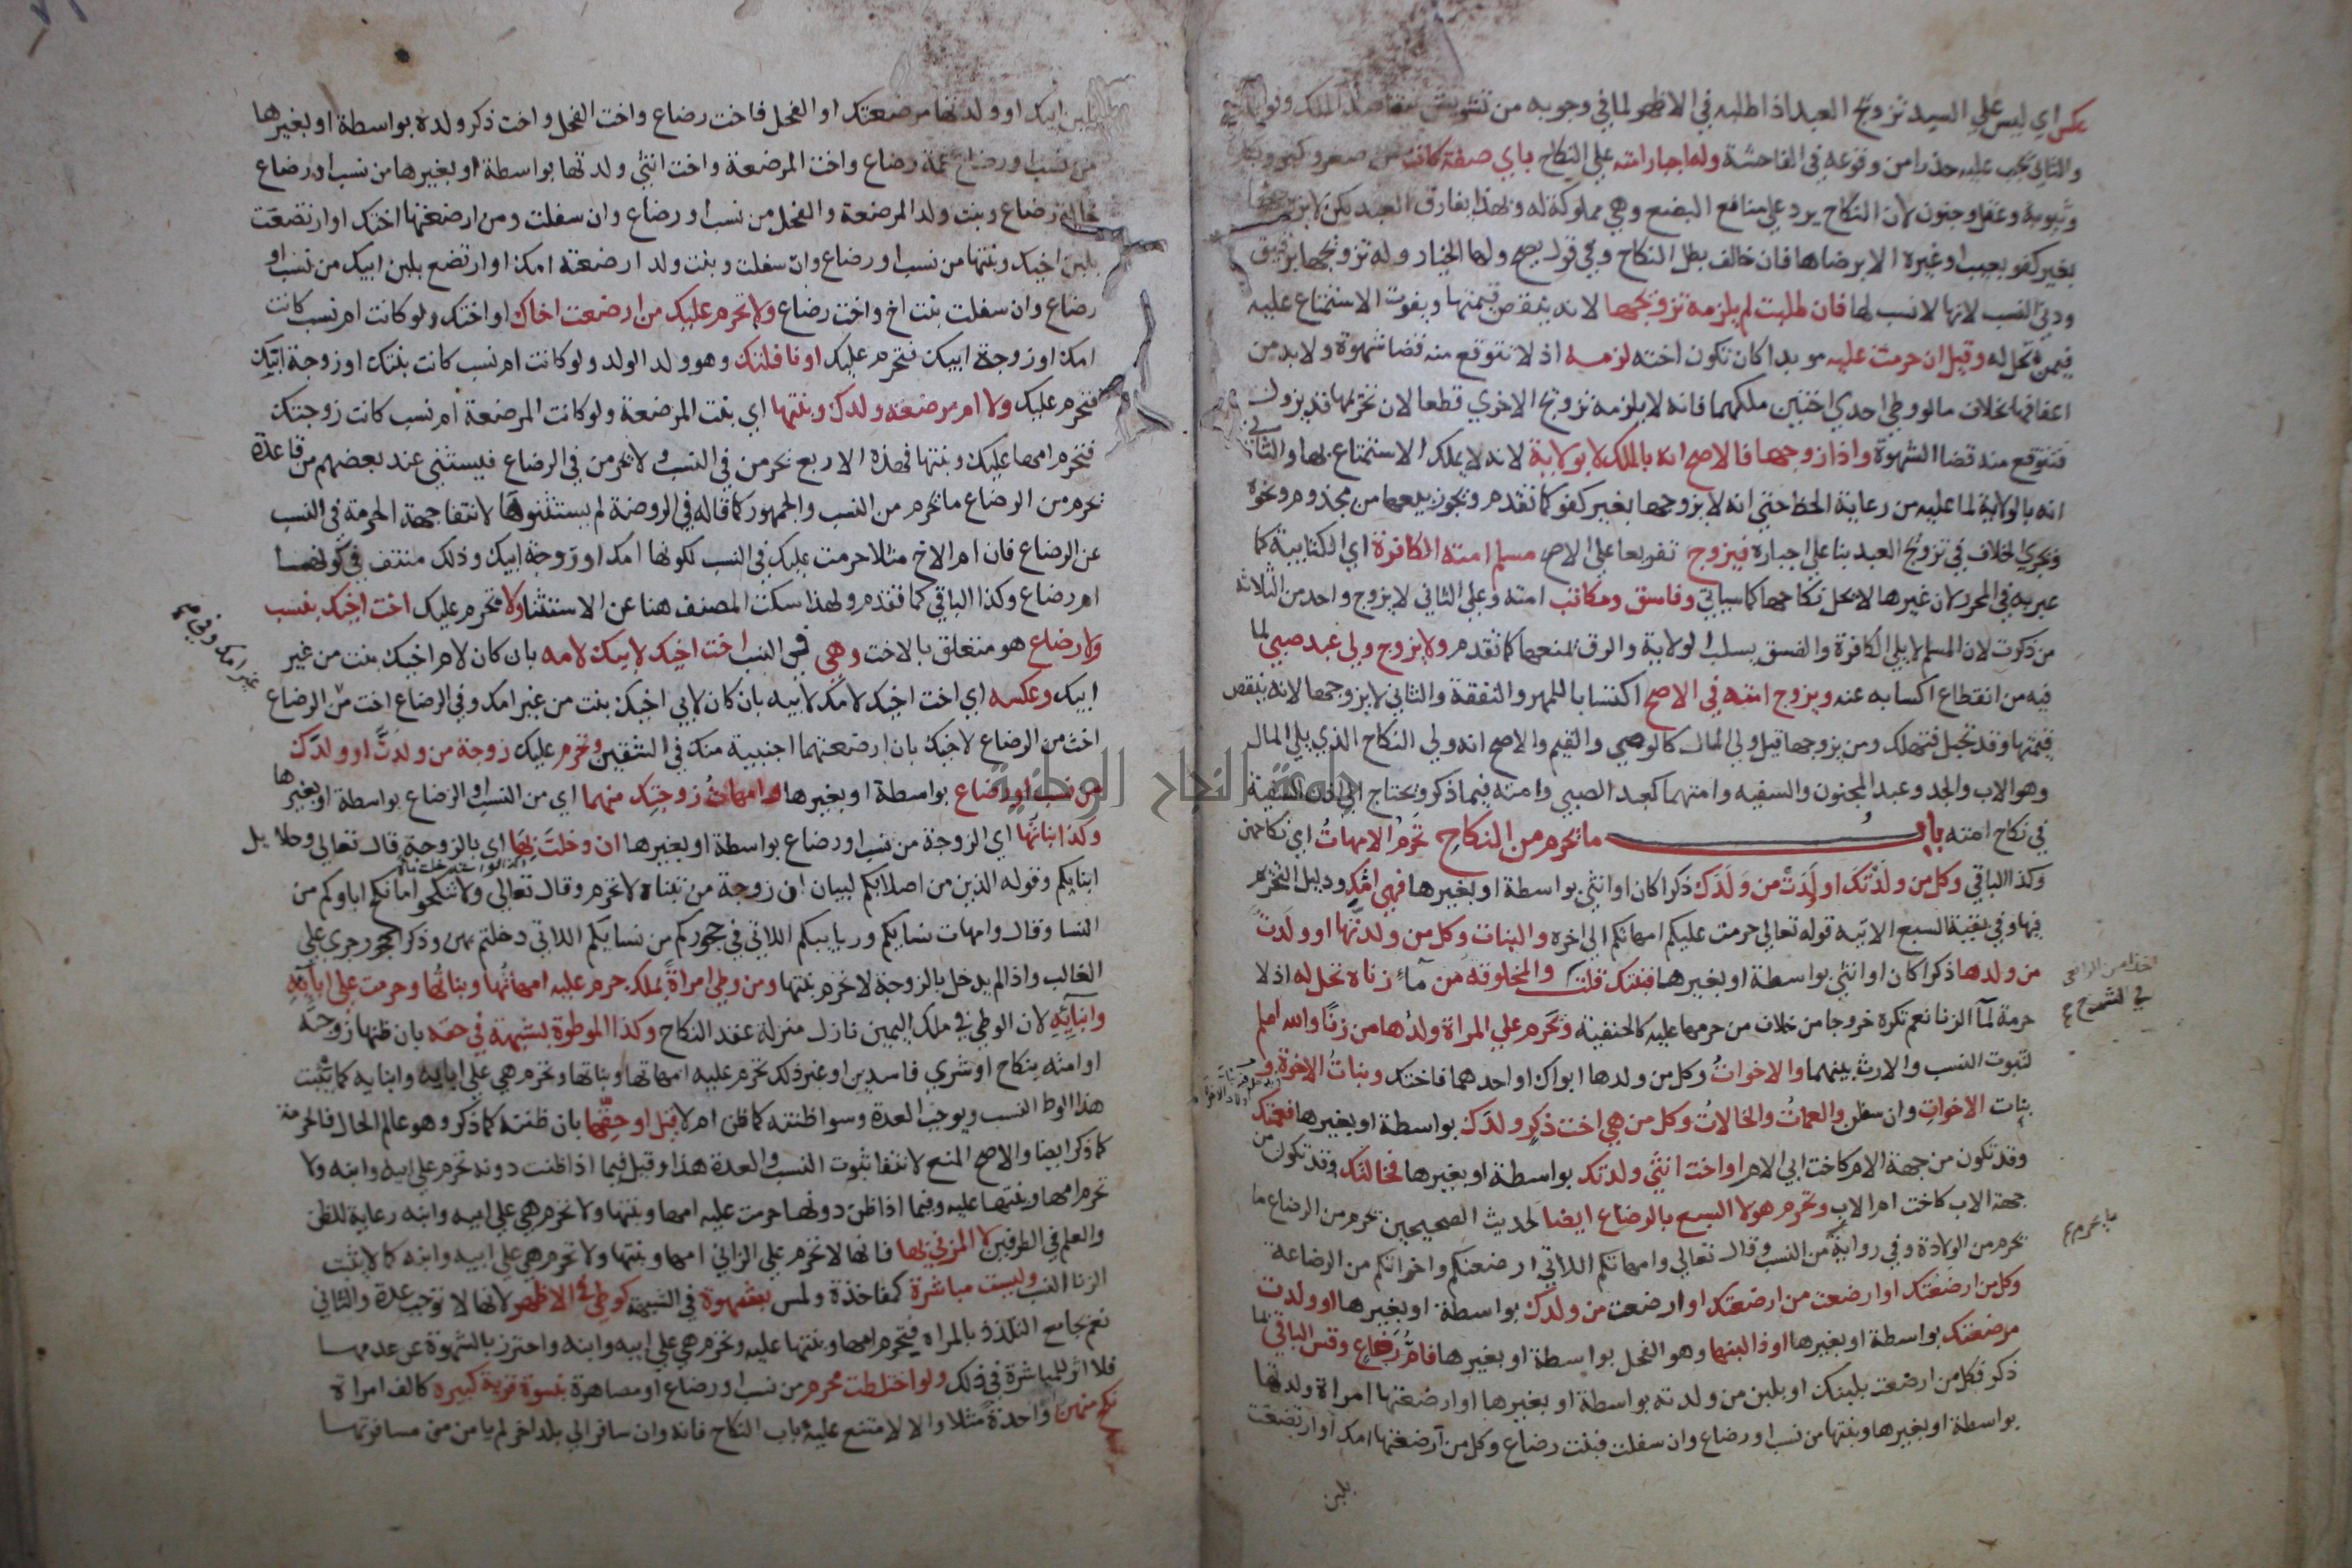 عكس اي ليس على السيد تزويج العبد اذا طلبه في الاظهر لما في وجوبه من تشويش مقاصد الملك وفوايده
والثاني يجب عليه حذرا من وقوعه في الفاحشة وله اجبار امته على النكاح باي صفة كانت من صغر وكبر وبكارة
وثيوبة وعقل وجنون لان النكاح يرد على منافع البضع وهي مملوكة له وبهذا يفارق العبد لكن لا يزوجها
بغير كفو بعيب او غيره الا برضاها فان خالف بطل النكاح وفي قول يصح ولها الخيار وله تزويجها برقيق
ودني النسب لانها لا نسب لها فان طلبت لم يلزمه تزويجها لانه ينقص قيمتها ويفوت الاستمتاع عليه
فيمن تحل له وقيل ان حرمت عليه موبدا كان تكون اخته لزمه اذ لا تتوقع منه قضا شهوة ولا بد من
اعفافها بخلاف ما لو وطي احدي اختين ملكهما فانه لا يلزمه تزويج الاخري قطعا لان تحريمها قد يزول
فتتوقع منه قضا الشهوة واذا زوجها فالاصح انه بالملك لا بولاية لانه لا يملك الاستمتاع بها والثاني
انه بالولاية لما عليه من رعاية الحظ حتي انه لا يزوجها بغير كفو كما تقدم ويجوز بيعها من مجذوم ونحوه
ويجري الخلاف في تزويج العبد بنا علي اجباره فيزوج تفريعا علي الاصح مسلم امته الكافرة اي الكتابية كما
عبر به في المحرر لان غيرها لا يحل نكاحها كما سياتي وفاسق ومكاتب امته وعلي الثاني لا يزوج واحد من الثلاثة
من ذكرت لان المسلم لا يلي الكافرة والفسق يسلب الولاية والرق يمنعها كما تقدم ولا يزوج ولي عبد صبي لما
فيه من انقطاع اكسابه عنه ويزوج امته في الاصح اكتسابا للمهر والنفقة والثاني لا يزوجها لانه ينقص
قيمتها وقد تحبل فتهلك ومن يزوجها قيل ولي المال كالوصي والقيم والاصح انه ولي النكاح الذي يلي المال
وهو الاب والجد وعبد المجنون والسفيه وامتهما كعبد الصبي وامته فيما ذكر ويحتاج الي اذن السفيه
في نكاح امته باب ما يحرم من النكاح تحرم الامهات اي نكاحهن
وكذا الباقي وكل من ولدتك او ولدت من ولدك ذكرا كان او انثي بواسطة او بغيرها فهي امك ودليل التحريم
فيها وفي بقية السبع الاتية قوله تعالي حرمت عليكم امهاتكم الي اخره والبنات وكل من ولدتها او ولدت
من ولدها ذكرا كان او انثي بواسطة او بغيرها فبنتك قلت والمخلوقة من ماء زناه تحل له اذ لا
حرمة لماء الزنا نعم تكره خروجا من خلاف من حرمها عليه كالحنفية وتحرم علي المراة ولدها من زنا والله اعلم
لثبوت النسب والارث بينهما والاخوات وكل من ولدها ابواك او احدهما فاختك وبنات الاخوة و
بنات الاخوات وان سفلن والعمات والخالات وكل من هي اخت ذكر ولدك بواسطة او بغيرها فعمتك
وقد تكون من جهة الام كاخت ابي الام او اخت انثي ولدتك بواسطة او بغيرها فخالتك وقد تكون من
جهة الاب كاخت ام الاب وتحرم هولا السبع بالرضاع ايضا لحديث الصحيحين تحرم من الرضاع ما
تحرم من الولادة وفي رواية من النسب وقال تعالي وامهاتكم اللاتي ارضعنكم واخواتكم من الرضاعة
وكل من ارضعتك او ارضعت من ارضعتك او ارضعت من ولدك بواسطة او بغيرها او ولدت
مرضعتك بواسطة او بغيرها او ذا لبنها وهو الفحل بواسطة او بغيرها فام رضاع وقس الباقي بما
ذكر فكل من ارضعت بلبنك او بلبن من ولدته بواسطة او بغيرها او ارضعتها امراة ولدتها
بواسطة او بغيرها وبنتها من نسب او رضاع وان سفلت فبنت رضاع وكل من ارضعتها امك او ارتضعت
بلبن
اخذا من الرافعي
في الشرح
ما يحرم
بلبن ابيك او ولدتها مرضعتك او الفحل فاخت رضاع واخت الفحل واخت ذكر ولده بواسطة او بغيرها
من نسب او رضاع عمة رضاع واخت المرضعة واخت انثي ولدتها بواسطة او بغيرها من نسب او رضاع
خالة رضاع وبنت ولد المرضعة والفحل من نسب او رضاع وان سفلت ومن ارضعتها اختك او ارتضعت
بلبن اخيك وبنتها من نسب او رضاع وان سفلت وبنت ولد ارضعته امك او ارتضع بلبن ابيك من نسب او
رضاع وان سفلت بنت اخ واخت رضاع ولا تحرم عليك من ارضعت اخاك او اختك ولو كانت ام نسب كانت
امك او زوجة ابيك فتحرم عليك او نافلتك وهو ولد الولد ولو كانت ام نسب كانت بنتك او زوجة ابنك
فتحرم عليك ولا ام مرضعة ولدك وبنتها اي بنت المرضعة ولو كانت المرضعة ام نسب كانت زوجتك
فتحرم امها عليك وبنتها فهذه الاربع تحرمن في النسب ولا تحرمن في الرضاع فيستثني عند بعضهم من قاعدة
تحرم من الرضاع ما تحرم من النسب والجمهور كما قاله في الروضة لم يستثنوها لانتفا جهة الحرمة في النسب
عن الرضاع فان ام الاخ مثلا حرمت عليك في النسب لكونها امك او زوجة ابيك وذلك منتف في كونها
ام رضاع وكذا الباقي كما تقدم ولهذا سكت المصنف هنا عن الاستثنا ولا تحرم عليك اخت اخيك بنسب
ولا رضاع هو متعلق بالاخت وهي في النسب اخت اخيك لابيك لامه بان كان لام اخيك بنت من غير
ابيك وعكسه اي اخت اخيك لامك لابيه بان كان لابي اخيك بنت من غير امك وفي الرضاع اخت من الرضاع
اخت من الرضاع لاخيك بان ارضعتهما اجنبية منك في الشقين وتحرم عليك زوجة من ولدت او ولدك
من نسب او رضاع بواسطة او بغيرها وامهات زوجتك منهما اي من النسب او الرضاع بواسطة او بغيرها
وكذا بناتها اي الزوجة من نسب او رضاع بواسطة او بغيرها ان دخلت بها اي بالزوجة قال تعالي وحلايل
ابنايكم وقوله الذين من اصلابكم لبيان ان زوجة من تبناه لا تحرم وقال تعالي ولا تنكحوا ما نكح اباوكم من
النسا وقال وامهات نسايكم وربايبكم اللاتي في حجوركم من نسايكم اللاتي دخلتم بهن وذكر الحجور جري علي
الغالب واذا لم يدخل بالزوجة لا تحرم بنتها ومن وطي امراة بملك حرم عليه امهاتها وبناتها وحرمت علي ابايه
وابنايه لان الوطي في ملك اليمين نازل منزلة عقد النكاح وكذا الموطوة بشبهة في حقه بان ظنها زوجته
او امته بنكاح او شري فاسدين او غير ذلك تحرم عليه امهاتها وبناتها وتحرم هي علي ابايه وابنايه كما يثبت
هذا الوط النسب ويوجب العدة وسوا ظنته كما ظن ام لا قيل او حقها بان ظنته كما ذكر وهو عالم الحال فالحرمة
كما ذكر ايضا والاصح المنع لانتفا ثبوت النسب والعدة هذا وقيل فيما اذا ظنت دونه تحرم علي ابيه وابنه ولا
تحرم امها وبنتها عليه وفيما اذا ظن دونها حرمت عليه امها وبنتها ولا تحرم هي علي ابيه وابنه رعاية للظن
والعلم في الطرفين لا المزني بها فانها لا تحرم علي الزاني امها وبنتها ولا تحرم هي علي ابيه وابنه كما لا يثبت
الزنا النسب وليست مباشرة كمفاخذة ولمس بشهوة في الشبهة كوطئ في الاظهر لانها لا توجب عدة والثاني
نعم بجامع التلذذ بالمراة فتحرم امها وبنتها عليه وتحرم هي علي ابيه وابنه واحترز بالشهوة عن عدمها
فلا اثر للمباشرة في ذلك ولو اختلطت محرم من نسب او رضاع او مصاهرة بنسوة قرية كبيرة كالف امراة
نكح منهن واحدة مثلا والا لامتنع عليه باب النكاح فانه وان سافر الي بلد اخر لم يامن من مسافرتها
جامعة النجاح الوطنية